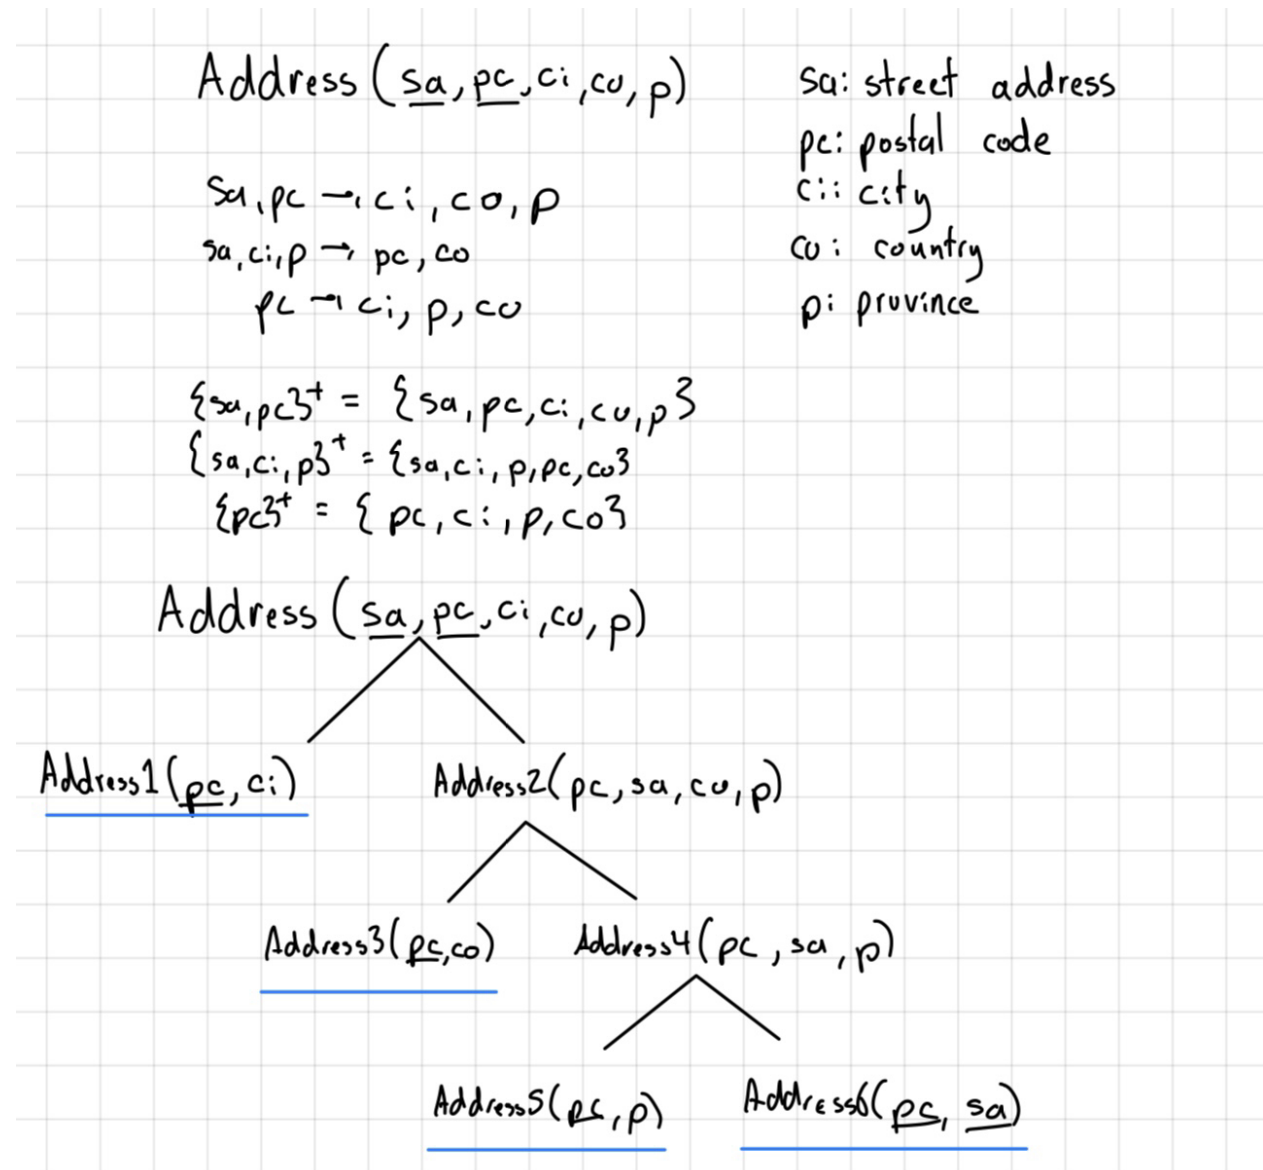 Address (sa, pc, ci, co, p)
sa: street address
pc: postal code
ci: city
co: country
p: province
sa, pc → ci, co, p
sa, ci, p → pc, co
pc → ci, p, co
{sa, pc}+ = {sa, pc, ci, co, p}
{sa, ci, p}+ = {sa, ci, p, pc, co}
{pc}+ = {pc, ci, p, co}
Address (sa, pc, ci, co, p)
Address1(pc, ci)
Address2(pc, sa, co, p)
Address3(pc, co)
Address4(pc, sa, p)
Address5(pc, p)
Address6(pc, sa)